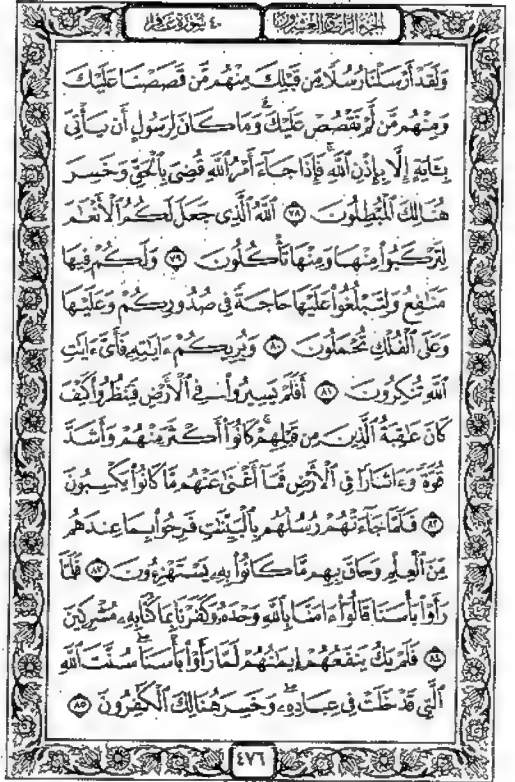 الجزء الرابع والعشرون
٤٠ سورة غافر
وَلَقَدْ أَرْسَلْنَا رُسُلًا مِّن قَبْلِكَ مِنْهُم مَّن قَصَصْنَا عَلَيْكَ
وَمِنْهُم مَّن لَّمْ نَقْصُصْ عَلَيْكَ ۗ وَمَا كَانَ لِرَسُولٍ أَن يَأْتِىَ
بِـَٔايَةٍ إِلَّا بِإِذْنِ ٱللَّهِ ۚ فَإِذَا جَآءَ أَمْرُ ٱللَّهِ قُضِىَ بِٱلْحَقِّ وَخَسِرَ
هُنَالِكَ ٱلْمُبْطِلُونَ ٧٨ ٱللَّهُ ٱلَّذِى جَعَلَ لَكُمُ ٱلْأَنْعَٰمَ
لِتَرْكَبُوا۟ مِنْهَا وَمِنْهَا تَأْكُلُونَ ٧٩ وَلَكُمْ فِيهَا
مَنَٰفِعُ وَلِتَبْلُغُوا۟ عَلَيْهَا حَاجَةً فِى صُدُورِكُمْ وَعَلَيْهَا
وَعَلَى ٱلْفُلْكِ تُحْمَلُونَ ٨٠ وَيُرِيكُمْ ءَايَٰتِهِۦ فَأَىَّ ءَايَٰتِ
ٱللَّهِ تُنكِرُونَ ٨١ أَفَلَمْ يَسِيرُوا۟ فِى ٱلْأَرْضِ فَيَنظُرُوا۟ كَيْفَ
كَانَ عَٰقِبَةُ ٱلَّذِينَ مِن قَبْلِهِمْ ۚ كَانُوٓا۟ أَكْثَرَ مِنْهُمْ وَأَشَدَّ
قُوَّةً وَءَاثَارًا فِى ٱلْأَرْضِ فَمَآ أَغْنَىٰ عَنْهُم مَّا كَانُوا۟ يَكْسِبُونَ
٨٢ فَلَمَّا جَآءَتْهُمْ رُسُلُهُم بِٱلْبَيِّنَٰتِ فَرِحُوا۟ بِمَا عِندَهُم
مِّنَ ٱلْعِلْمِ وَحَاقَ بِهِم مَّا كَانُوا۟ بِهِۦ يَسْتَهْزِءُونَ ٨٣ فَلَمَّا
رَأَوْا۟ بَأْسَنَا قَالُوٓا۟ ءَامَنَّا بِٱللَّهِ وَحْدَهُۥ وَكَفَرْنَا بِمَا كُنَّا بِهِۦ مُشْرِكِينَ
٨٤ فَلَمْ يَكُ يَنفَعُهُمْ إِيمَٰنُهُمْ لَمَّا رَأَوْا۟ بَأْسَنَا ۖ سُنَّتَ ٱللَّهِ
ٱلَّتِى قَدْ خَلَتْ فِى عِبَادِهِۦ ۖ وَخَسِرَ هُنَالِكَ ٱلْكَٰفِرُونَ ٨٥
٤٧٦